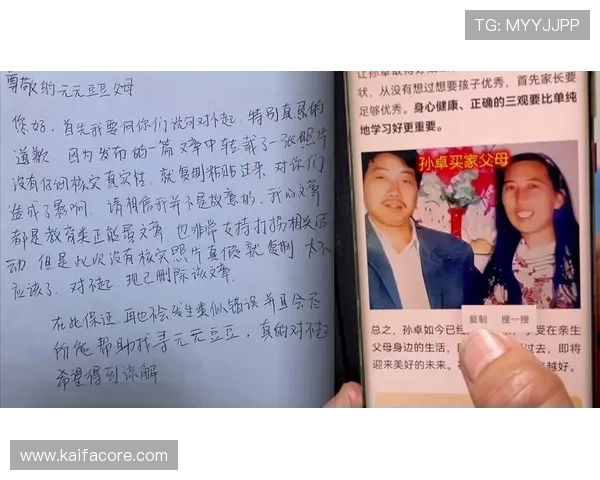 TG: MYYJJPP
尊敬的元元豆豆父母
您好，首先我要向你们说句对不起，特别真恳的
道歉，因为发布的一篇文章中转载了一张照片
没有仔细核实真实性，就复制粘贴过来，对你们
造成了影响，请相信我并不是故意的，我的文章
都是教育类正能量文章，也非常支持打拐相关活
动，但是此次没有核实照片真假就复制，太不
应该了，对不起，现已删除该文章。
在此保证，再也不会发生类似错误并且会尽
所能帮助找寻元元豆豆，真的对不起
希望得到谅解
让孙卓取得好成
状，从没有想过想要孩子优秀，首先家长要
足够优秀。身心健康、正确的三观要比单纯
地学习好更重要。
孙卓买家父母
复制 搜一搜
总之，孙卓如今已经 受在亲生
父母身边的生活， 过去，即将
迎来美好的未来。 越好。
www.kaifacore.com